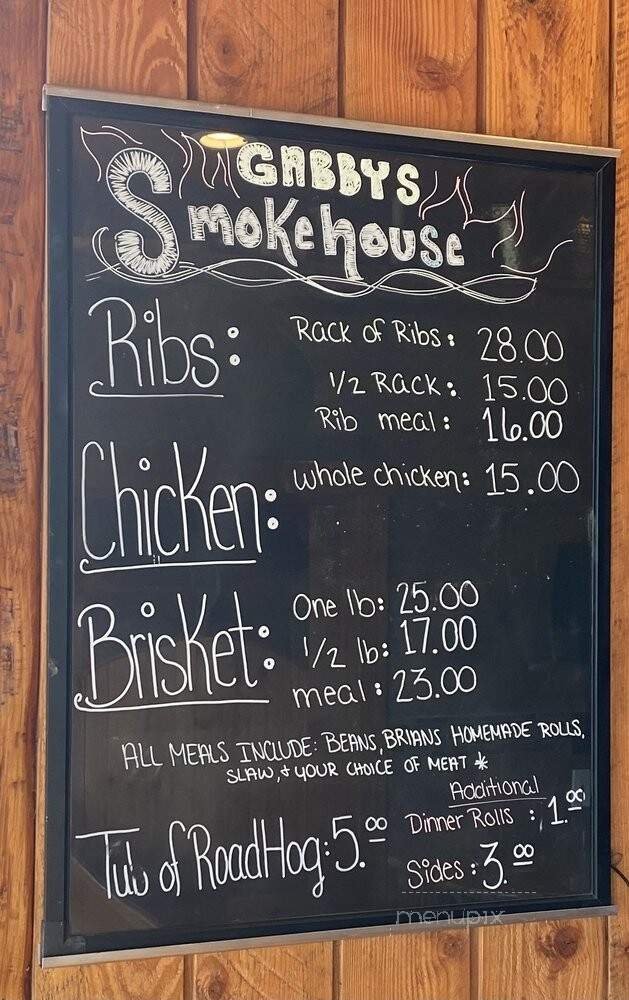 GABBYS
Smokehouse
Ribs:
Rack of Ribs: 28.00
1/2 Rack: 15.00
Rib meal: 16.00
Chicken:
whole chicken: 15.00
Brisket:
One lb: 25.00
1/2 lb: 17.00
meal: 23.00
ALL MEALS INCLUDE: BEANS, BRIANS HOMEMADE ROLLS,
SLAW, & YOUR CHOICE OF MEAT *
Additional
Dinner Rolls : 1.00
Tub of RoadHog: 5.00
Sides: 3.00
menupix